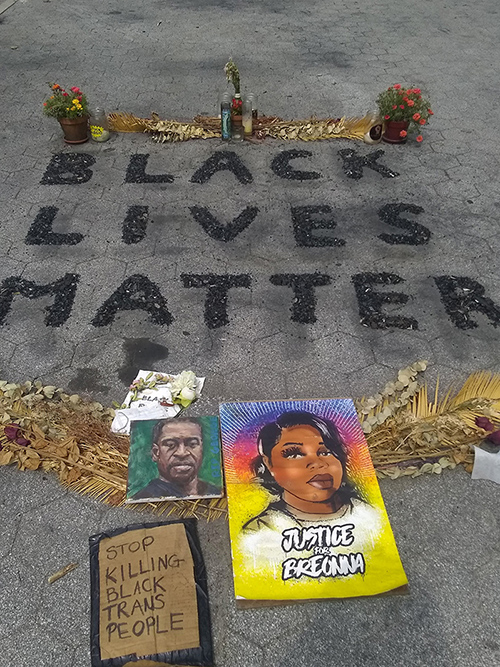 BLACK
LIVES
MATTER
BLACK
JUSTICE
FOR
BREONNA
STOP
KILLING
BLACK
TRANS
PEOPLE